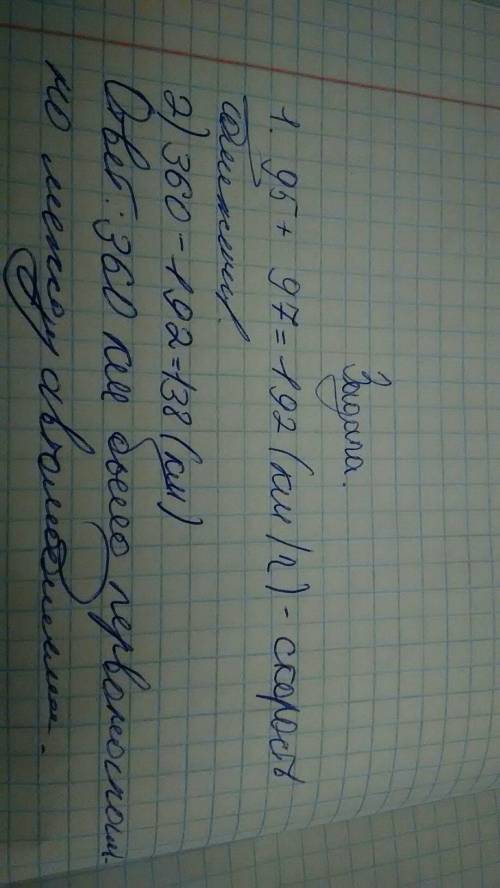 Задача.
1. 95 + 97 = 192 (км/ч) - скорость
сближения.
2) 360 - 192 = 138 (км)
Ответ: 360 км было первоначаль
но между автомобилями.